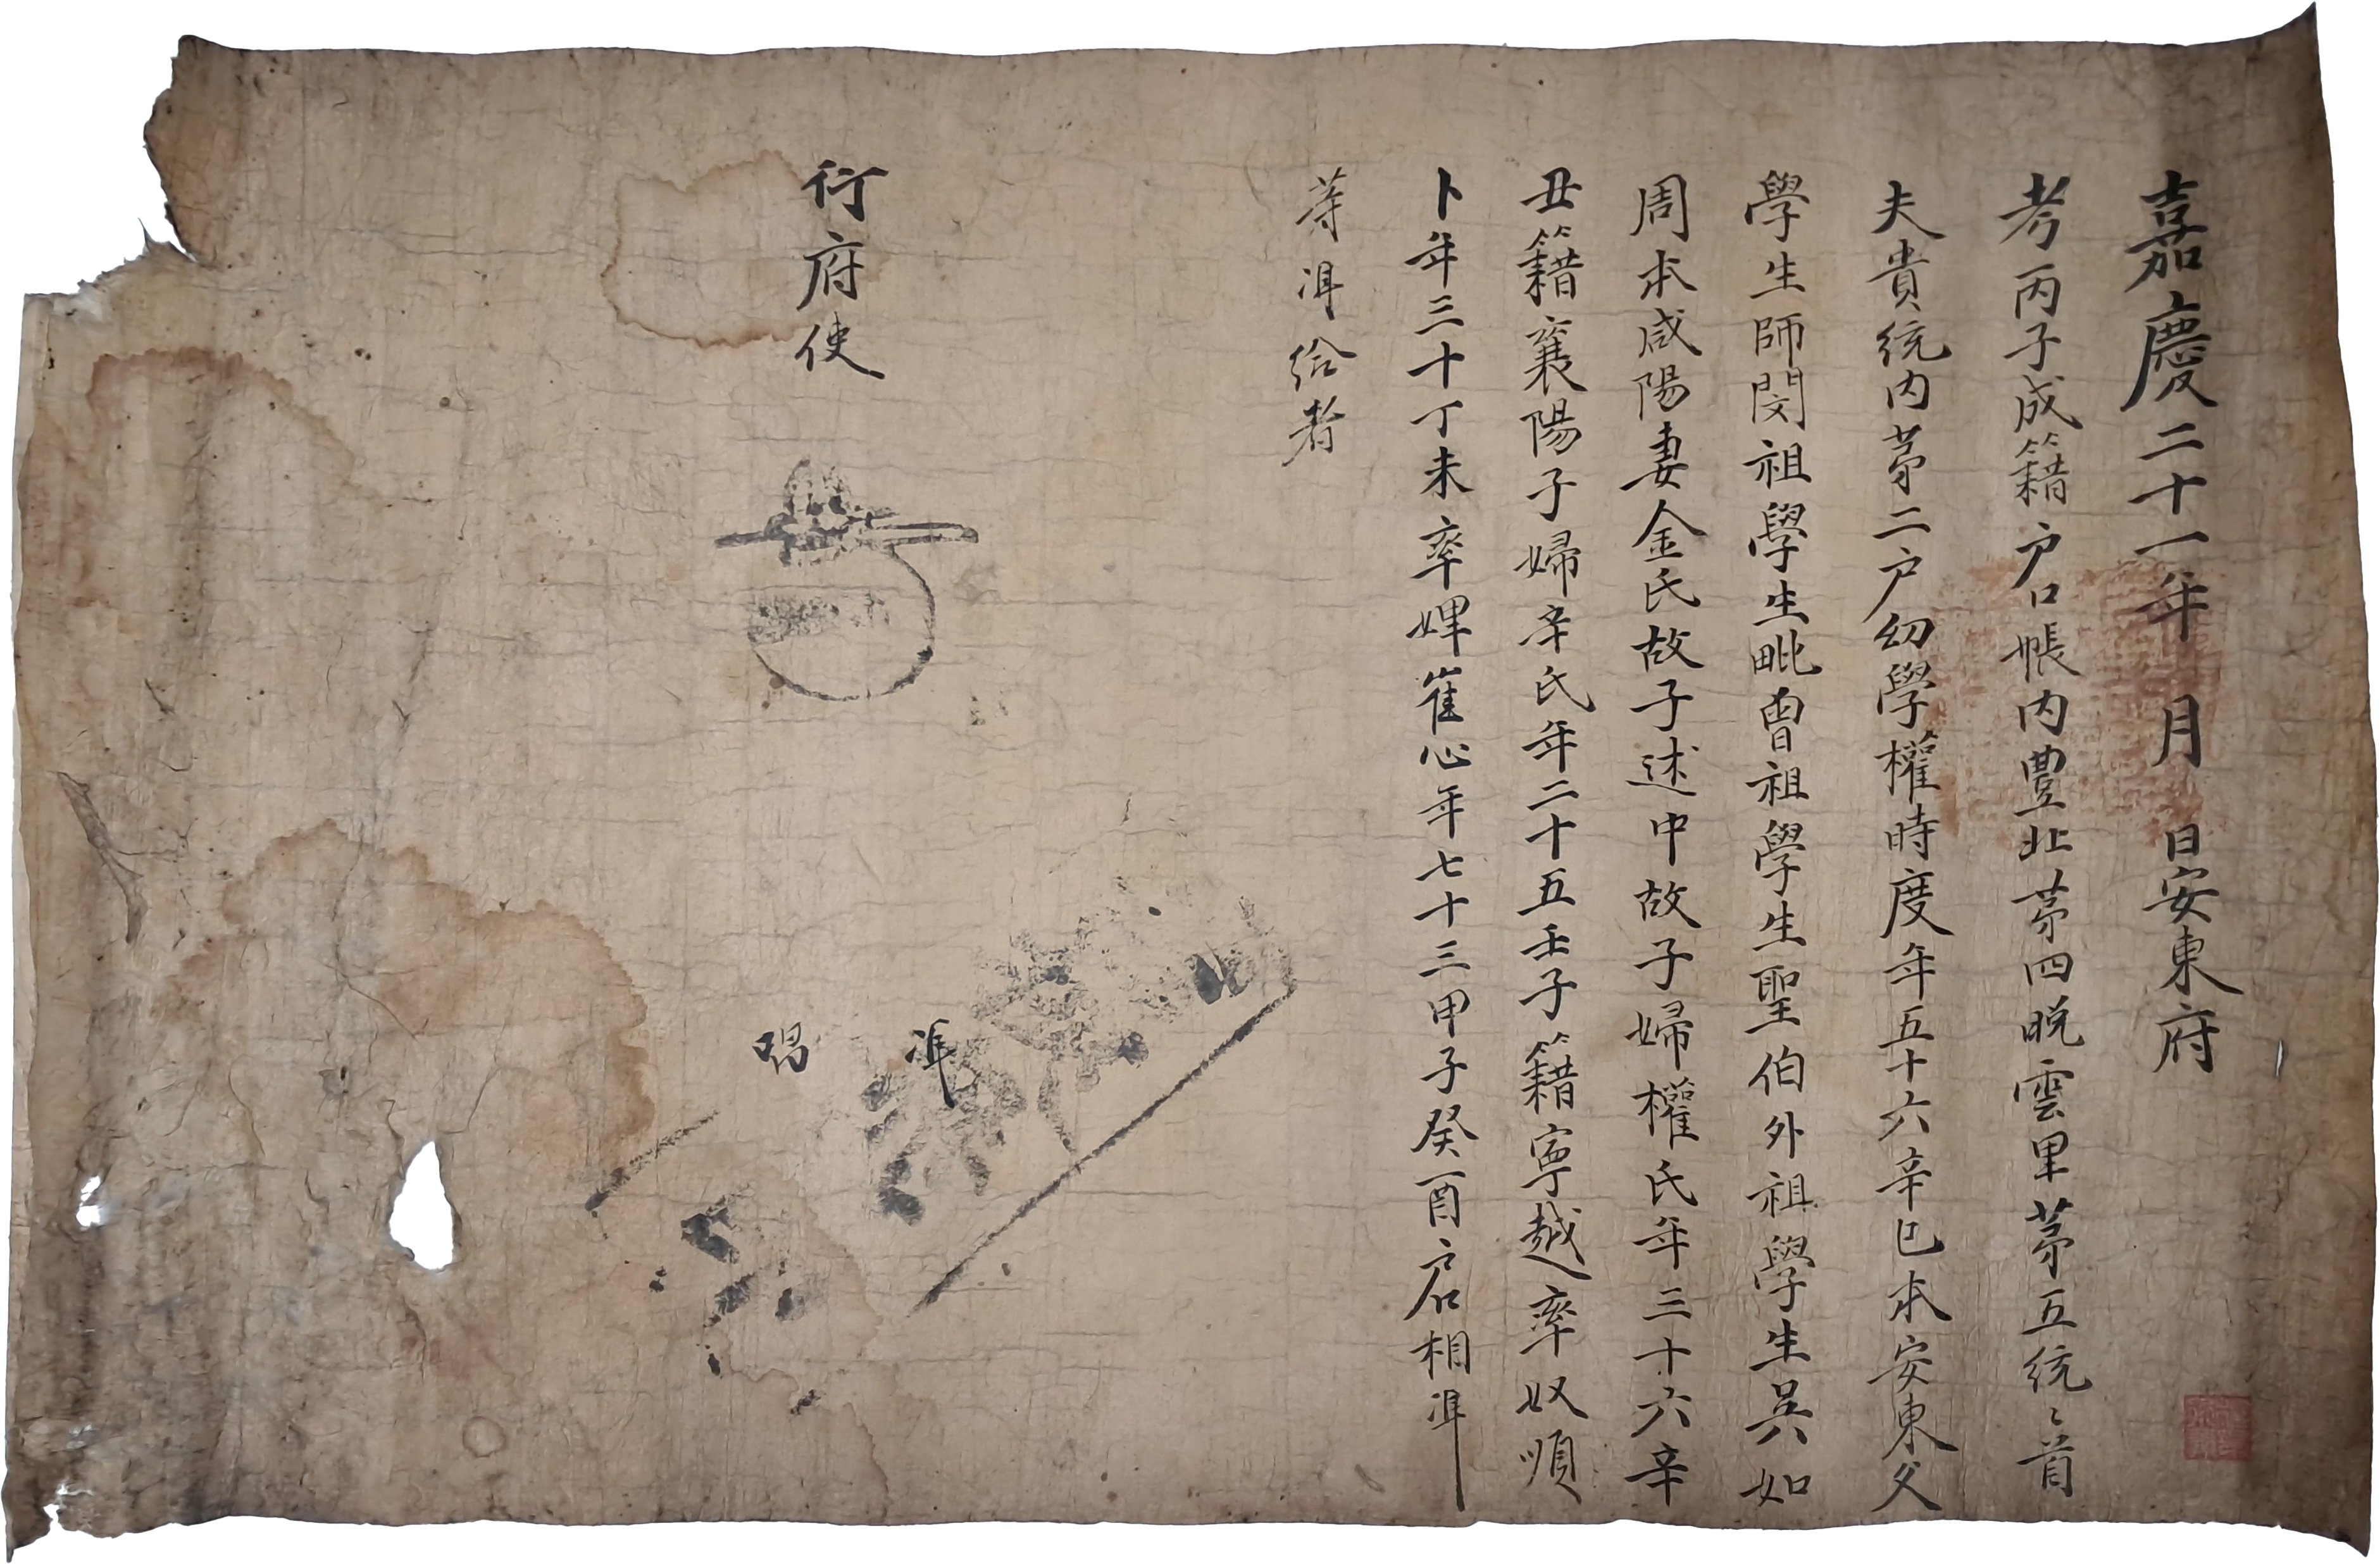 嘉慶二十一年 月 日安東府
考丙子成籍户口帳内豊北苐四晩雲里苐五統〻首
夫貴統内苐二户幼學權時度年五十六辛巳本安東父
學生師閔祖學生毗曾祖學生聖伯外祖學生吳如
周本咸陽妻金氏故子述中故子婦權氏年三十六辛
丑籍襄陽子婦辛氏年二十五壬子籍寧越率奴順
卜年三十丁未率婢崔心年七十三甲子癸酉户口相凖
䓁凖給者
行府使
凖
周